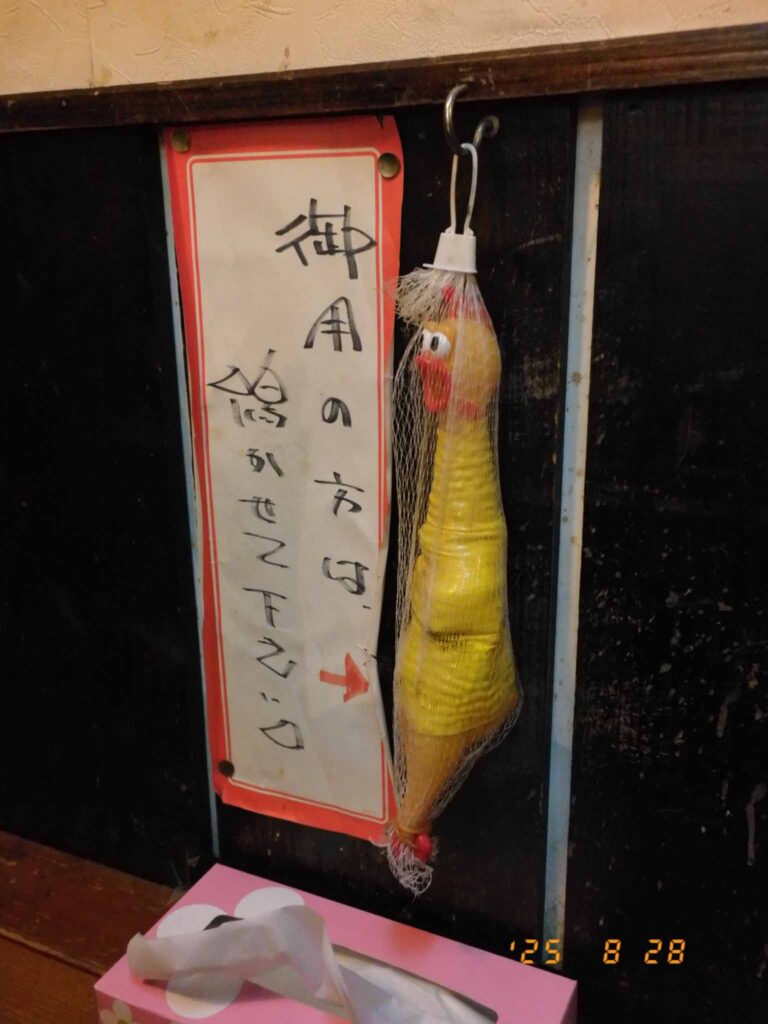 御用の方は、
鳴かせて下さい。
'25 8 28